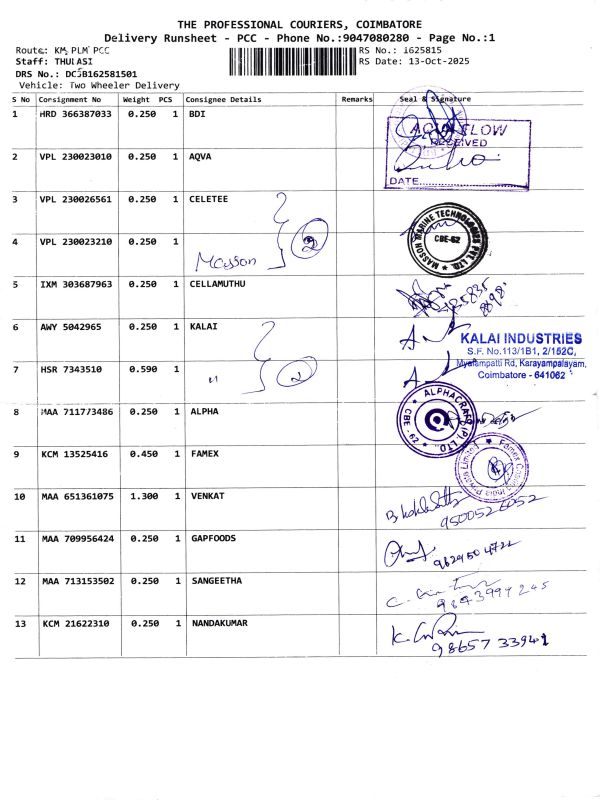 THE PROFESSIONAL COURIERS, COIMBATORE
Delivery Runsheet - PCC - Phone No.:9047080280 - Page No.:1
Route: KM, PLM PCC
RS No.: 1625815
Staff: THULASI
RS Date: 13-Oct-2025
DRS No.: DCJB162581501
Vehicle: Two Wheeler Delivery
S No Consignment No Weight PCS Consignee Details Remarks Seal & Signature
1 HRD 366387033 0.250 1 BDI
2 VPL 230023010 0.250 1 AQVA
AQUA FLOW
RECEIVED
DATE
3 VPL 230026561 0.250 1 CELETEE
4 VPL 230023210 0.250 1
Masson 2
MASSON MARINE TECHNOLOGIES PVT. LTD.
CBE-62
5 IXM 303687963 0.250 1 CELLAMUTHU
6 AWY 5042965 0.250 1 KALAI
KALAI INDUSTRIES
S.F. No.113/1B1, 2/152C,
Myalampatti Rd, Karayampalayam,
Coimbatore - 641062
7 HSR 7343510 0.590 1
" 2
8 MAA 711773486 0.250 1 ALPHA
ALPHACRAFT (P) LTD.
CBE - 62
9 KCM 13525416 0.450 1 FAMEX
10 MAA 651361075 1.300 1 VENKAT
9500526052
11 MAA 709956424 0.250 1 GAPFOODS
9629504722
12 MAA 713153502 0.250 1 SANGEETHA
9893999245
13 KCM 21622310 0.250 1 NANDAKUMAR
9865733941